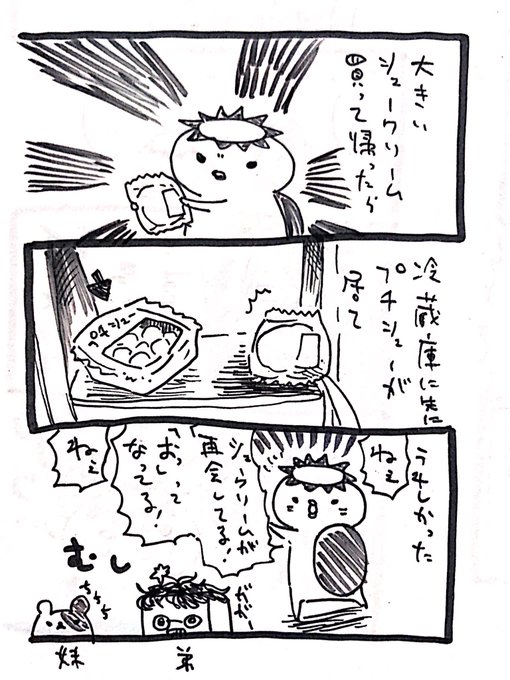 大きい
シュークリーム
買って帰ったら
冷蔵庫に先に
プチシューが
居て
プチシュー
うれしかった
ねぇ
シュークリームが
再会してる!
「おっ」って
なってる!
ねぇ
むし
弟
妹